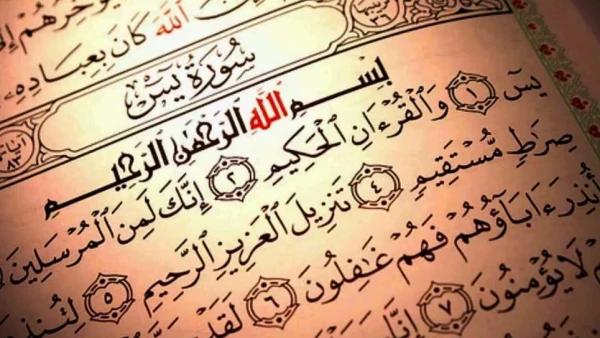 خِرُهُمْ إِلَى
ٱللَّهَ كَانَ بِعِبَادِهِ
سُورَةُ يسٓ
بِسْمِ ٱللَّهِ ٱلرَّحْمَٰنِ ٱلرَّحِيمِ
يسٓ ١ وَٱلْقُرْءَانِ ٱلْحَكِيمِ ٢ إِنَّكَ لَمِنَ ٱلْمُرْسَلِينَ
صِرَٰطٍ مُّسْتَقِيمٍ ٤ تَنزِيلَ ٱلْعَزِيزِ ٱلرَّحِيمِ ٥ لِتُنذِ
أُنذِرَ ءَابَآؤُهُمْ فَهُمْ غَٰفِلُونَ ٦ لَقَدْ
لَا يُؤْمِنُونَ ٧ إِنَّا